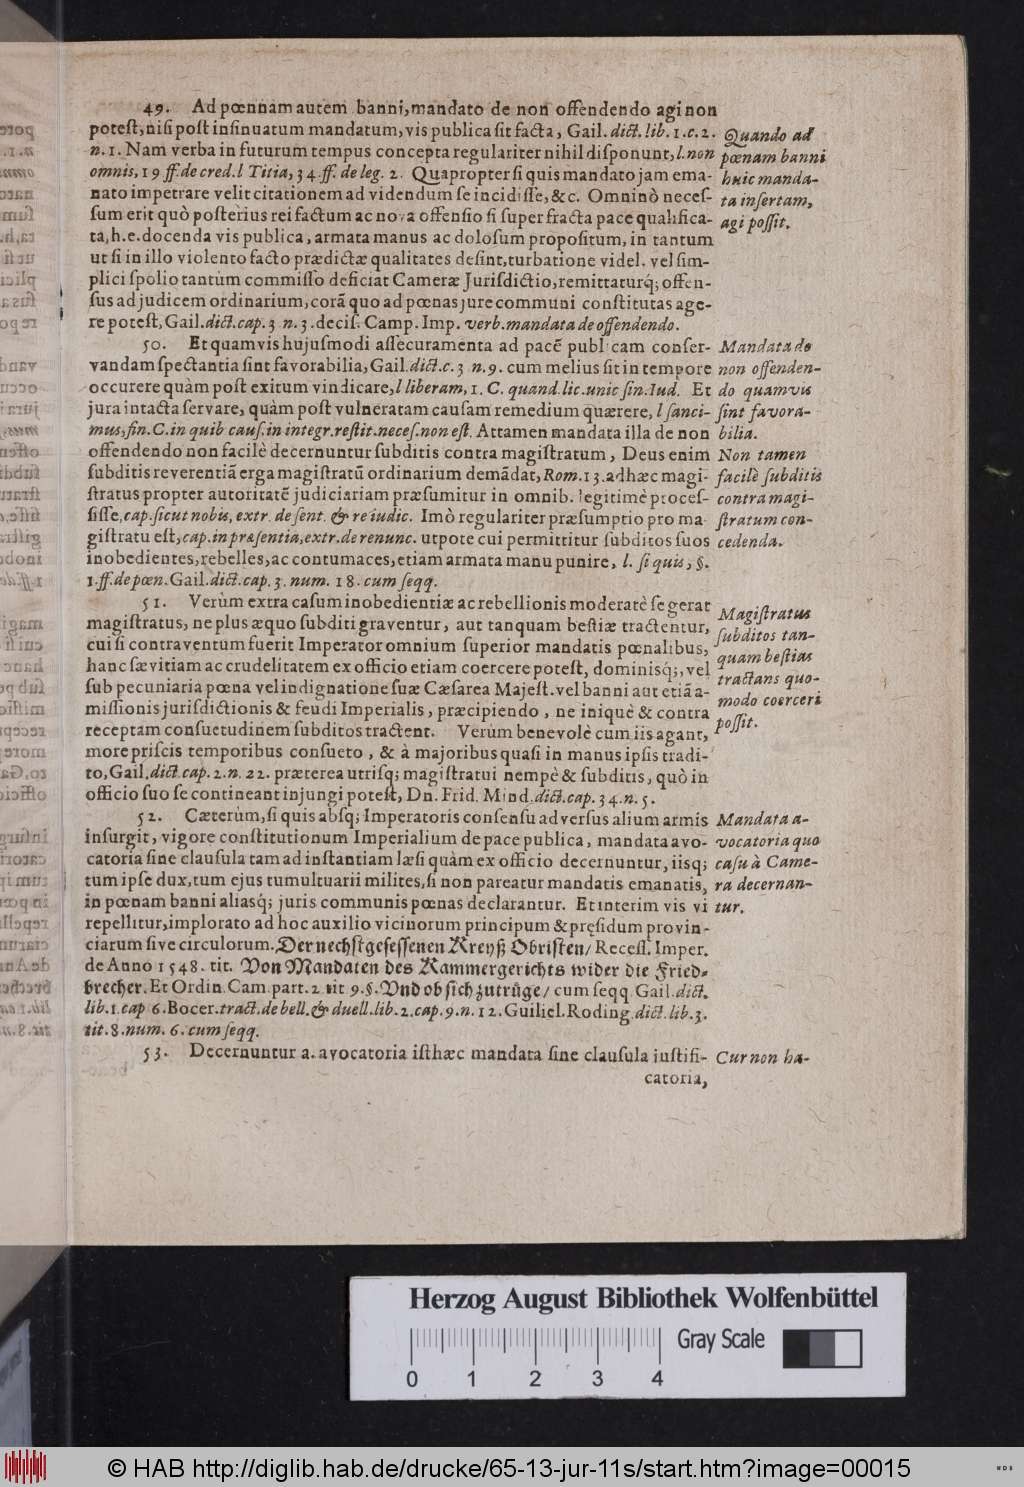 49. Ad pœnnam autem banni, mandato de non offendendo agi non
poteſt, niſi poſt inſinuatum mandatum, vis publica ſit facta, Gail. dict. lib. 1. c. 2.
n. 1. Nam verba in futurum tempus concepta regulariter nihil diſponunt, l. non
omnis, 19 ff. de cred. l Titia, 34. ff. de leg. 2. Quapropter ſi quis mandato jam ema-
nato impetrare velit citationem ad videndum ſe incidiſſe, &c. Omninò neceſ-
ſum erit quò poſterius rei factum ac nova offenſio ſi ſuper fracta pace qualifica-
ta, h. e. docenda vis publica, armata manus ac doloſum propoſitum, in tantum
ut ſi in illo violento facto prædictæ qualitates deſint, turbatione videl. vel ſim-
plici ſpolio tantùm commiſſo deficiat Cameræ Jurisdictio, remittaturq́; offen-
ſus ad judicem ordinarium, corã quo ad pœnas jure communi conſtitutas age-
re poteſt, Gail. dict. cap. 3 n. 3. deciſ. Camp. Imp. verb. mandata de offendendo.
Quando ad
pœnam banni
huic manda-
ta inſertam,
agi poſſit.
50. Et quamvis hujuſmodi aſſecuramenta ad pacẽ publicam conſer-
vandam ſpectantia ſint favorabilia, Gail. dict. c. 3 n. 9. cum melius ſit in tempore
occurere quàm poſt exitum vindicare, l liberam, 1. C. quand. lic. unic ſin. Iud. Et
jura intacta ſervare, quàm poſt vulneratam cauſam remedium quærere, l ſanci-
mus, fin. C. in quib cauſ. in integr. reſtit. neceſ. non eſt. Attamen mandata illa de non
offendendo non facilè decernuntur ſubditis contra magiſtratum, Deus enim
ſubditis reverentiã erga magiſtratũ ordinarium demãdat, Rom. 13. adhæc magi-
ſtratus propter autoritatẽ judiciariam præſumitur in omnib. legitimè proceſ-
ſiſſe, cap. ſicut nobis, extr. de ſent. & re iudic. Imò regulariter præſumptio pro ma-
giſtratu eſt, cap. in præſentia, extr. de renunc. utpote cui permittitur ſubditos ſuos
inobedientes, rebelles, ac contumaces, etiam armata manu punire, l. ſi quis, §.
1. ff. de pœn. Gail. dict. cap. 3. num. 18. cum ſeqq.
Mandata de
non offenden-
do quamvis
ſint favora-
bilia.
Non tamen
facilè ſubditis
contra magi-
ſtratum con-
cedenda.
51. Verùm extra caſum inobedientiæ ac rebellionis moderatè ſe gerat
magiſtratus, ne plus æquo ſubditi graventur, aut tanquam beſtiæ tractentur,
cui ſi contraventum fuerit Imperator omnium ſuperior mandatis pœnalibus,
hanc ſævitiam ac crudelitatem ex officio etiam coercere poteſt, dominisq́;, vel
ſub pecuniaria pœna vel indignatione ſuæ Cæſarea Majeſt. vel banni aut etiã a-
miſſionis jurisdictionis & feudi Imperialis, præcipiendo, ne iniquè & contra
receptam conſuetudinem ſubditos tractent. Verùm benevolè cum iis agant,
more priſcis temporibus conſueto, & à majoribus quaſi in manus ipſis tradi-
to, Gail. dict. cap. 2. n. 22. præterea utriſq; magiſtratui nempè & ſubditis, quò in
officio ſuo ſe contineant injungi poteſt, Dn. Frid. Mind. dict. cap. 34. n. 5.
Magiſtratus
ſubditos tan-
quam beſtias
tractans quo-
modo coerceri
poſſit.
52. Cæterùm, ſi quis abſq; Imperatoris conſenſu adverſus alium armis
inſurgit, vigore conſtitutionum Imperialium de pace publica, mandata avo-
catoria ſine clauſula tam ad inſtantiam læſi quàm ex officio decernuntur, iisq;
tum ipſe dux, tum ejus tumultuarii milites, ſi non pareatur mandatis emanatis,
in pœnam banni aliasq́; juris communis pœnas declarantur. Et interim vis vi
repellitur, implorato ad hoc auxilio vicinorum principum & pręſidum provin-
ciarum ſive circulorum. Der nechſtgeſeſſenen Kreyß Obriſten/ Receſſ. Imper.
de Anno 1548. tit. Von Mandaten des Kammergerichts wider die Fried-
brecher. Et Ordin. Cam. part. 2. tit 9. §. Vnd ob ſich zutrůge/ cum ſeqq. Gail. dict.
lib. 1. cap 6. Bocer. tract. de bell. & duell. lib. 2. cap. 9. n. 12. Guiliel. Roding. dict. lib. 3.
tit. 8. num. 6. cum ſeqq.
Mandata a-
vocatoria quo
caſu à Came-
ra decernan-
tur.
53. Decernuntur a. avocatoria iſthæc mandata ſine clauſula iuſtifi-
Cur non ha-
catoria,
Herzog August Bibliothek Wolfenbüttel
Gray Scale
0 1 2 3 4
© HAB http://diglib.hab.de/drucke/65-13-jur-11s/start.htm?image=00015